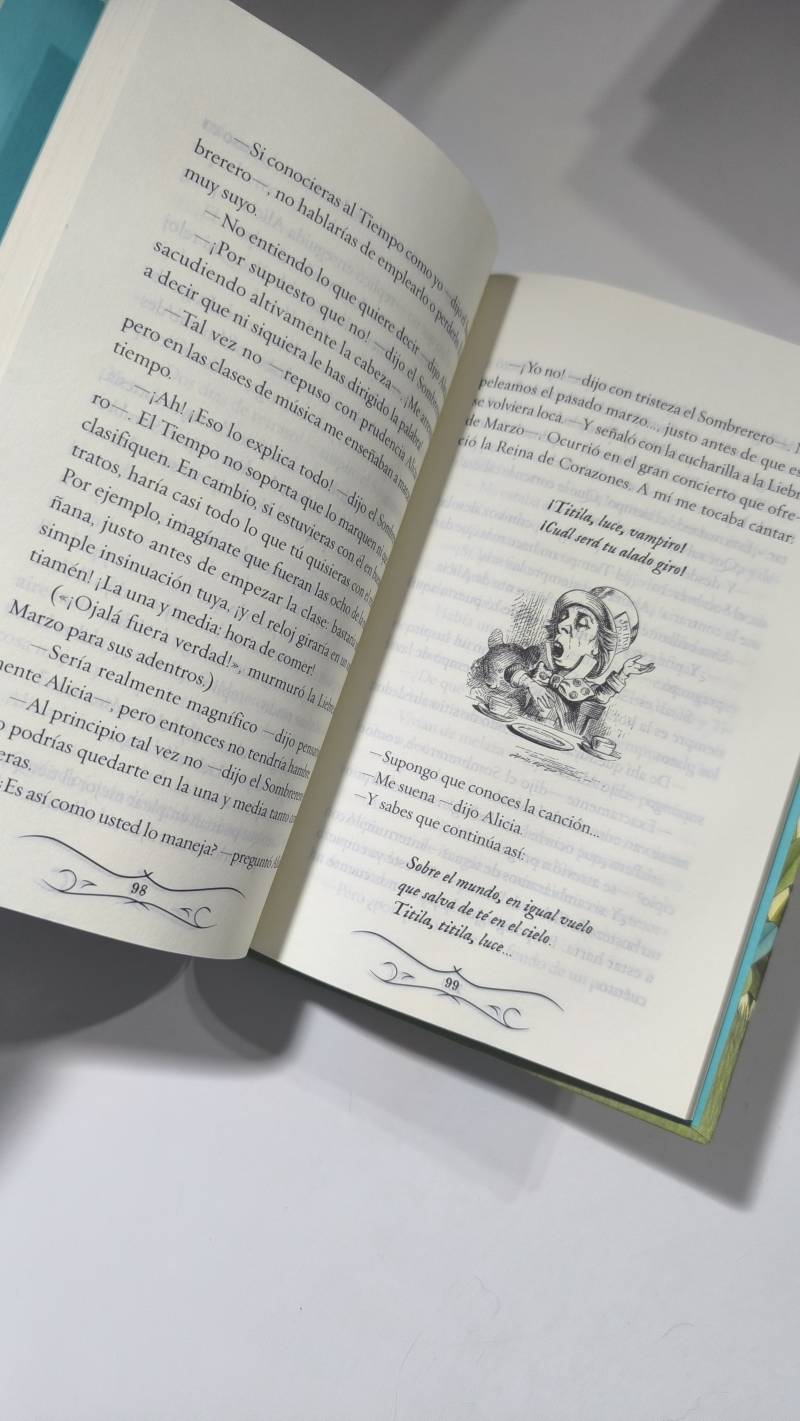 —Si conocieras al Tiempo como yo —dijo el
brerero—, no hablarías de emplearlo o perderlo
muy suyo.
—No entiendo lo que quiere decir —dijo
—¡Por supuesto que no! —dijo el
sacudiendo altivamente la cabeza—. ¡Me
a decir que ni siquiera le has dirigido la palabra
—Tal vez no —repuso con prudencia
pero en las clases de música me enseñaban a
tiempo.
—¡Ah! ¡Eso lo explica todo! —dijo el
ro—. El Tiempo no soporta que lo marquen ni
clasifiquen. En cambio, si estuvieras con él en
tratos, haría casi todo lo que tú quisieras con el
Por ejemplo, imagínate que fueran las ocho de la
ñana, justo antes de empezar la clase: bastaría
simple insinuación tuya, ¡y el reloj giraría en un
tiamén! ¡La una y media: hora de comer!
(«¡Ojalá fuera verdad!», murmuró la Liebre
Marzo para sus adentros.)
—Sería realmente magnífico —dijo
mente Alicia—, pero entonces no tendría hambre
—Al principio tal vez no —dijo el Sombrerero
podrías quedarte en la una y media tanto
eras.
¿Es así como usted lo maneja? —preguntó
98
—¡Yo no! —dijo con tristeza el Sombrerero—.
peleamos el pasado marzo..., justo antes de que
se volviera loca. —Y señaló con la cucharilla a la
de Marzo—. Ocurrió en el gran concierto que ofre-
ció la Reina de Corazones. A mí me tocaba cantar:
¡Titila, luce, vampiro!
¡Cuál será tu alado giro!
—Supongo que conoces la canción...
—Me suena —dijo Alicia.
—Y sabes que continúa así:
Sobre el mundo, en igual vuelo
que salva de té en el cielo.
Titila, titila, luce...
99